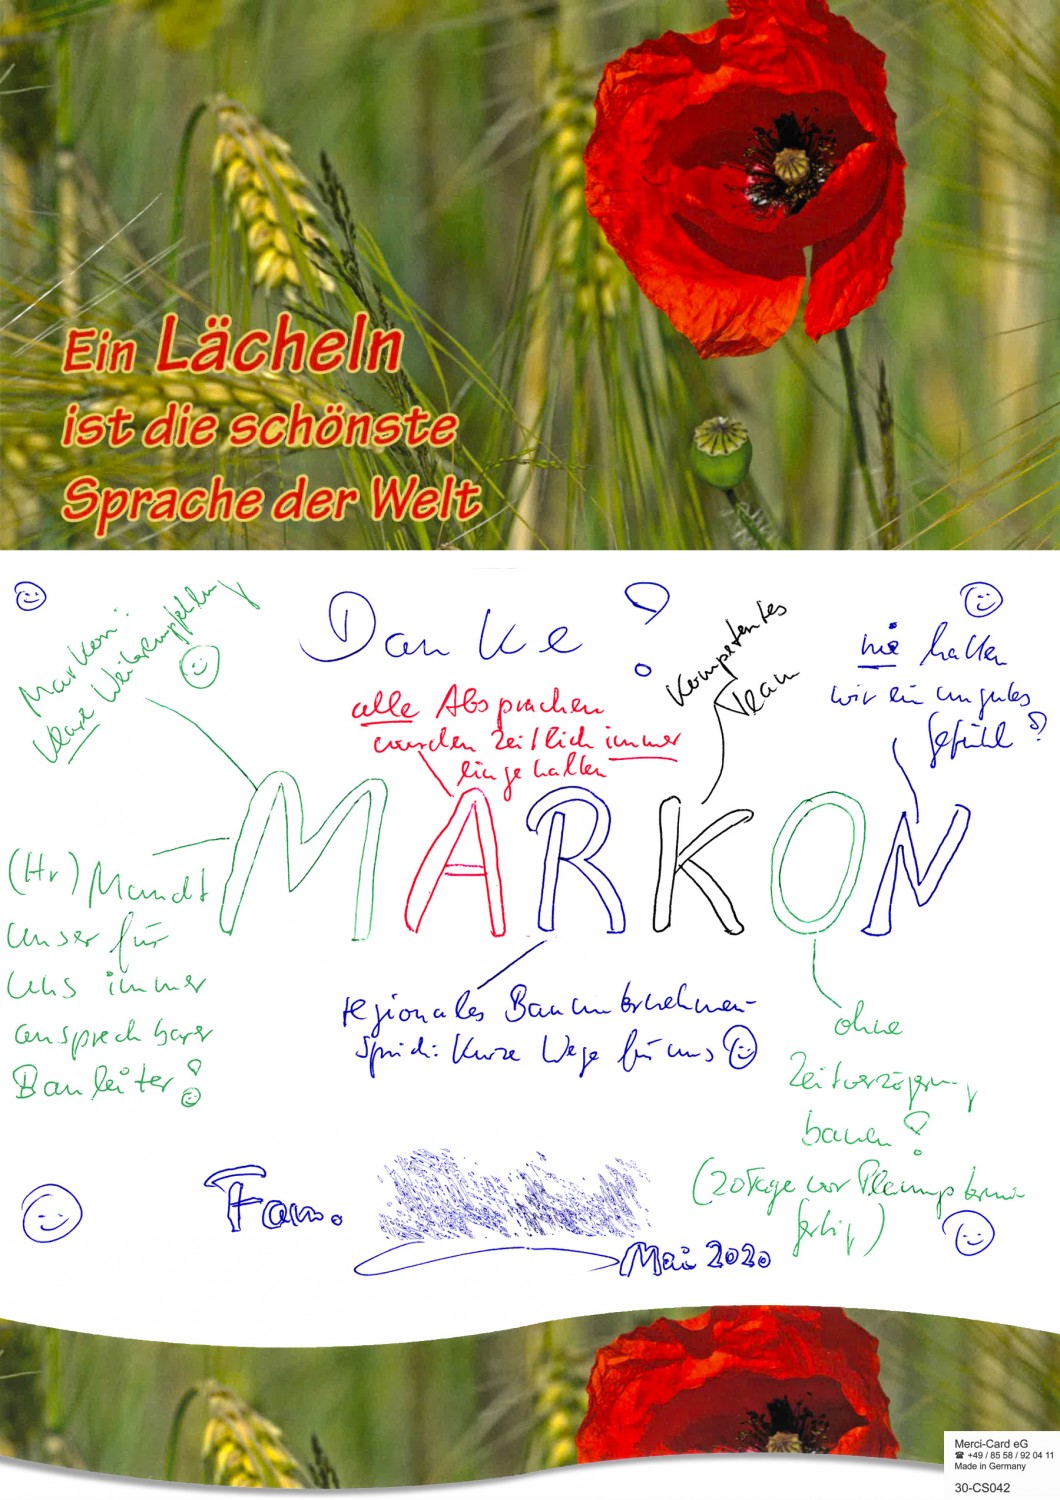 Ein Lächeln
ist die schönste
Sprache der Welt
Danke!
Markon:
klare Weiterempfehlung
alle Absprachen
wurden zeitlich immer
eingehalten
Kompetentes
Team
nie hatten
wir ein ungutes
Gefühl!
MARKON
(Hr) Mandt
unser für
uns immer
ansprechbarer
Bauleiter!
regionales Bauunternehmen
sprich: Kurze Wege für uns
ohne
Zeitverzögerung
bauen!
(20 Tage vor Planungstermin
fertig)
Fam.
Mai 2020
Merci-Card eG
☎ +49 / 85 58 / 92 04 11
Made in Germany
30-CS042